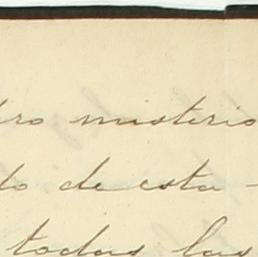 misterio
de esta
todas las